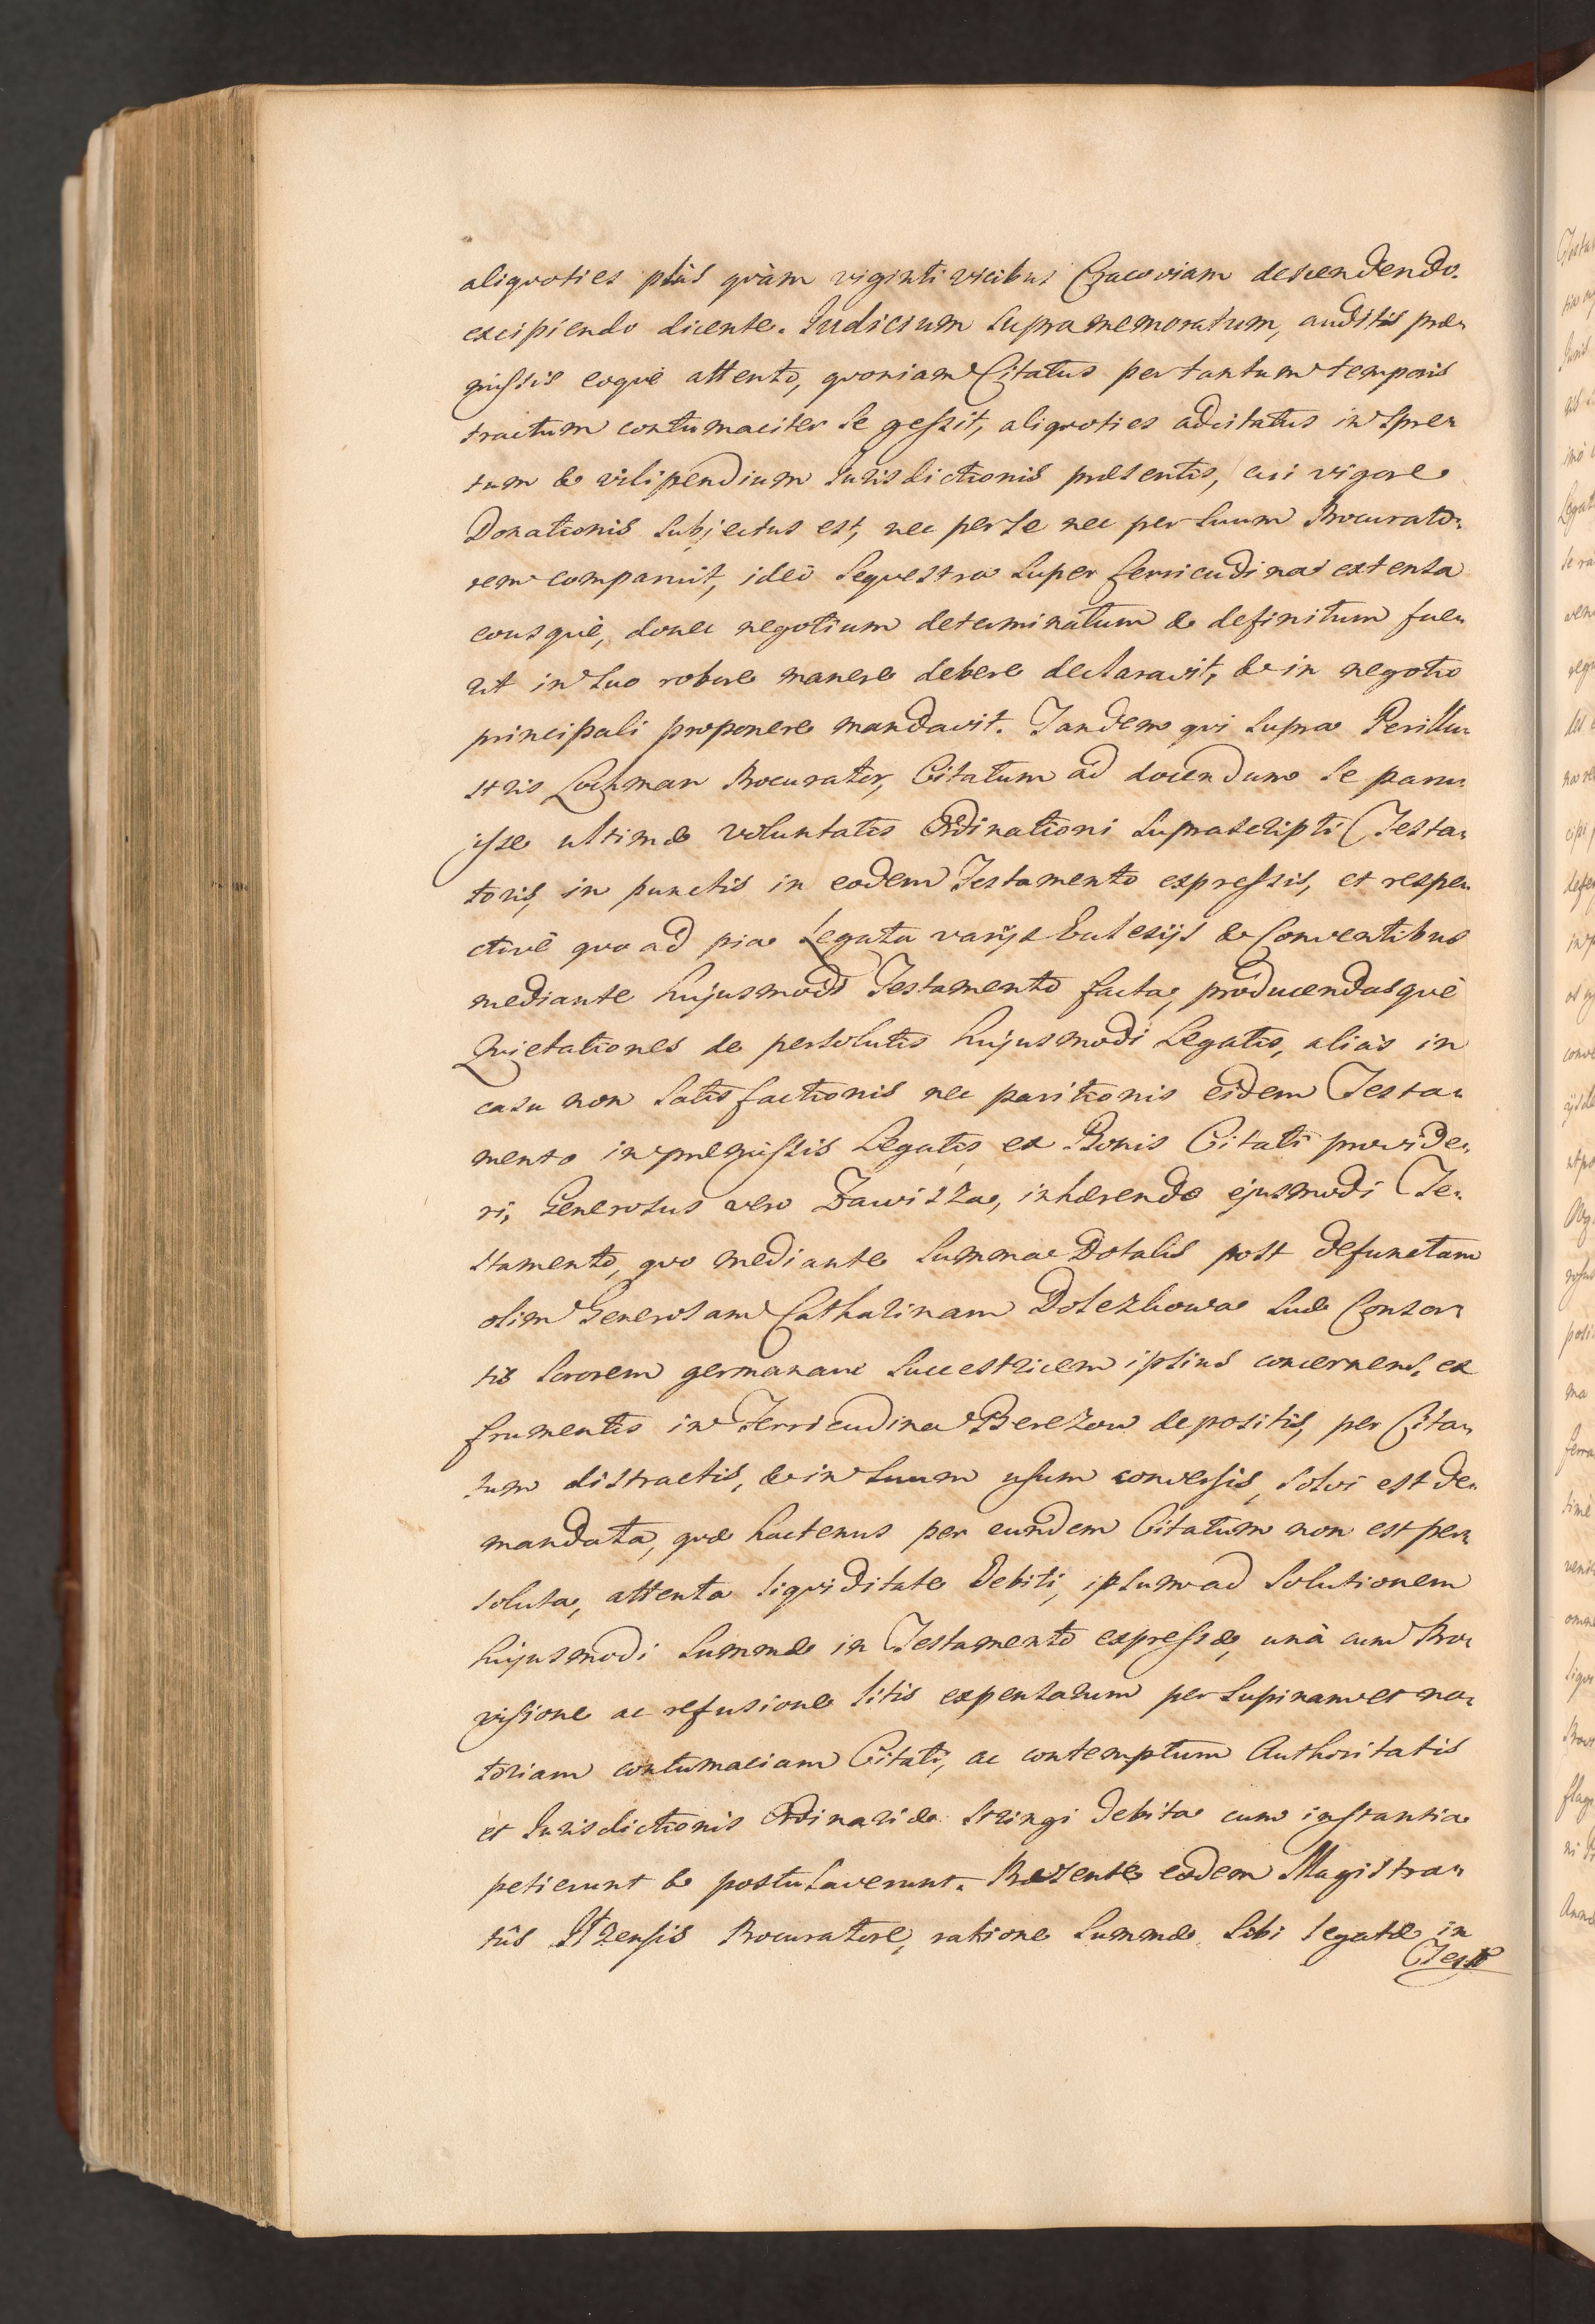 aliquoties plùs quàm viginti vicibus Cracoviam descendendo.
excipiendo dicente. Iudicium supra memoratum, auditis præ=
missis eoquè attento, quoniam Citatus per tantum temporis
tractum contumaciter se gessit, aliquoties adcitatus in spre=
tum & vilipendium Iurisdictionis præsentis, cui vigore
Donationis subjectus est, nec per se nec per suum Procurato=
rem comparuit, ideò sequestra super ferricudina extensa
eousquè, donec negotium determinatum & definitum fue=
rit in suo robore manere debere declaravit, & in negotio
principali proponere mandavit. Tandem qui supra Perillu=
stris Lochman Procurator, Citatum ad docendum se paru=
isse ultimæ voluntatis Ordinationi suprascripti Testa=
toris, in punctis in eodem Testamento expressis, et respe=
ctivè quoad pia Legata varijs Eclesijs & Conventibus
mediante hujusmodi Testamento facta, producendasquè
Quietationes de persolutis hujusmodi Legatis, aliàs in
casu non satisfactionis nec paritionis eidem Testa=
mento in præmissis Legatis, ex Bonis Citati provide=
ri, Generosus vero Zawisza, inhærendo ejusmodi Te=
stamento, quo mediante summa Dotalis post defunctam
olim Generosam Catharinam Dolezkowa suæ Consor=
tis sororem germanam successricem ipsius concernens, ex
frumentis in Ferricudina Berezow depositis, per Cita=
tum distractis, & in suum usum conversis, solvi est de=
mandata, quæ hactenus per eundem Citatum non est per=
soluta, attenta liquiditate Debiti, ipsum ad solutionem
hujusmodi summæ in Testamento expressæ, unà cum Pro=
visione ac refusione litis expensarum per supinam et no=
toriam contumaciam Citati, ac contemptum Authoritatis
et Iurisdictionis Ordinariæ stringi debita cum instantia
petierunt & postulaverunt. Præsente eodem Magistra=
tûs Ilzensis Procuratore, ratione summæ sibi legatæ in
Testo